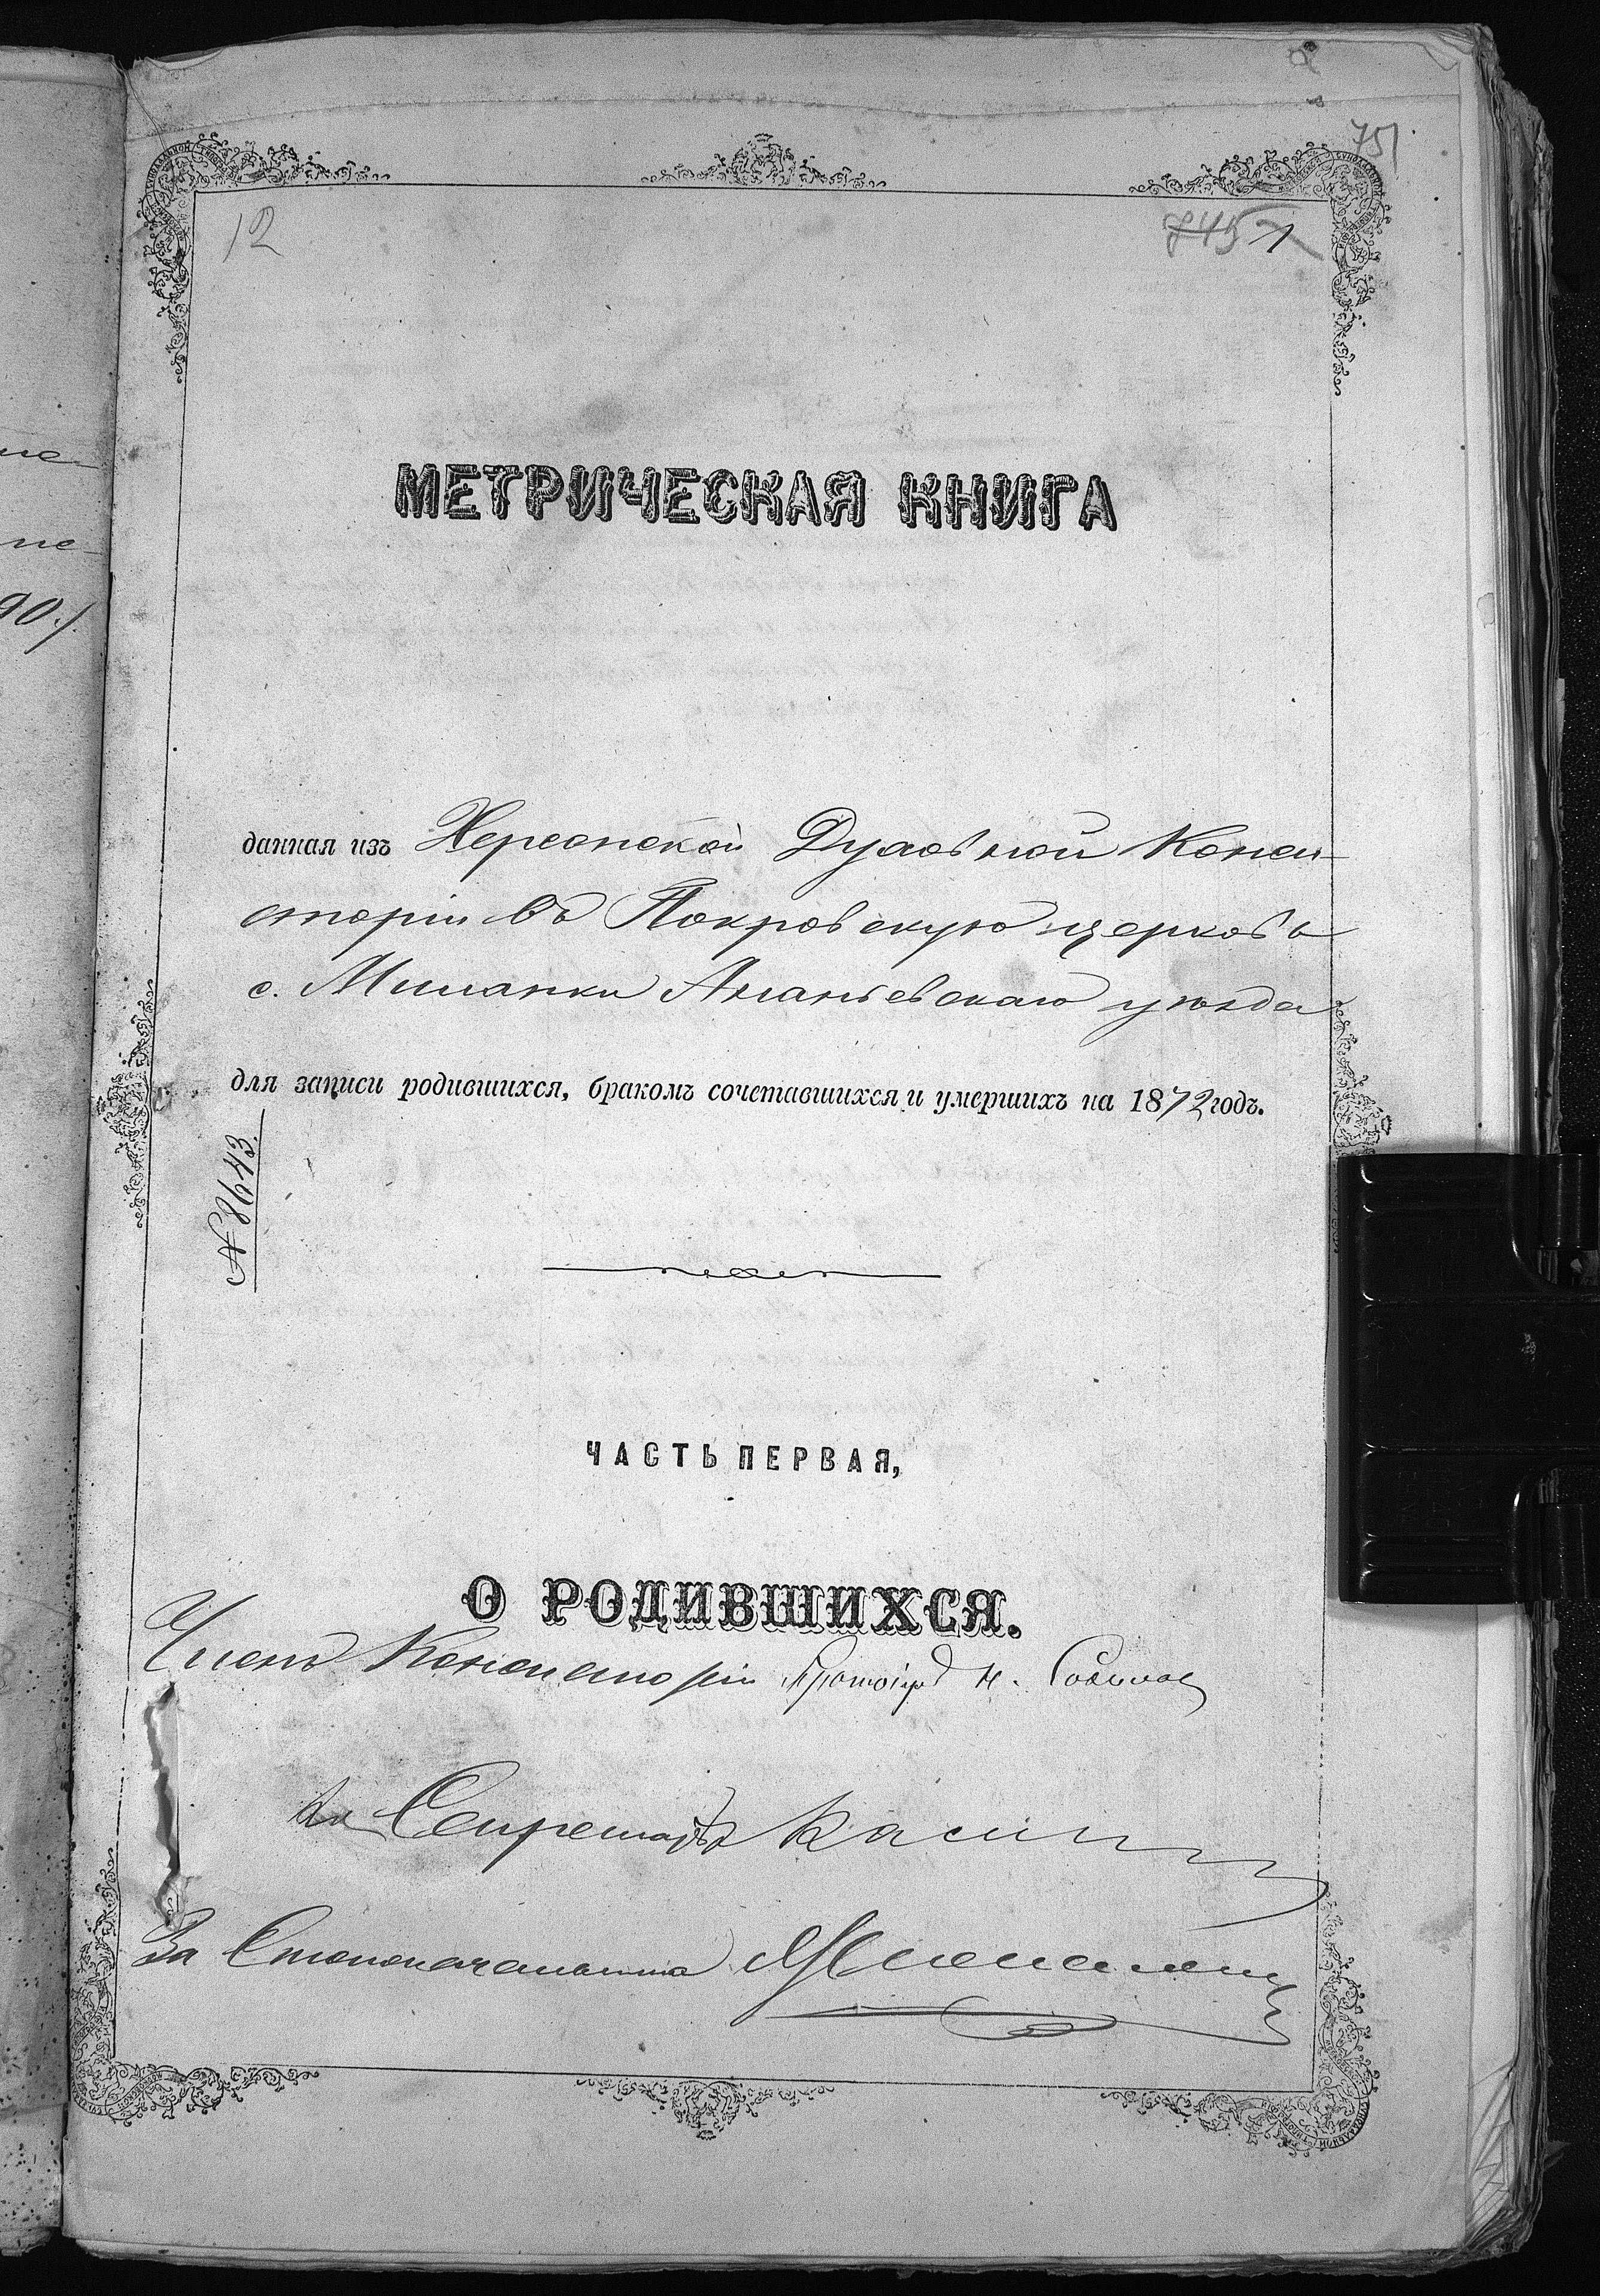 751
12
745 1
МЕТРИЧЕСКАЯ КНИГА
данная изъ Херсонской Духовной Конси-
сторіи въ Покровскую церковь
с. Миланки Ананьевскаго уѣзда
для записи родившихся, бракомъ сочетавшихся и умершихъ на 1872 годъ.
№ 8643.
ЧАСТЬ ПЕРВАЯ,
О РОДИВШИХСЯ.
Членъ Консисторіи Протоіер Н.
Секретарь
За Столоначальника